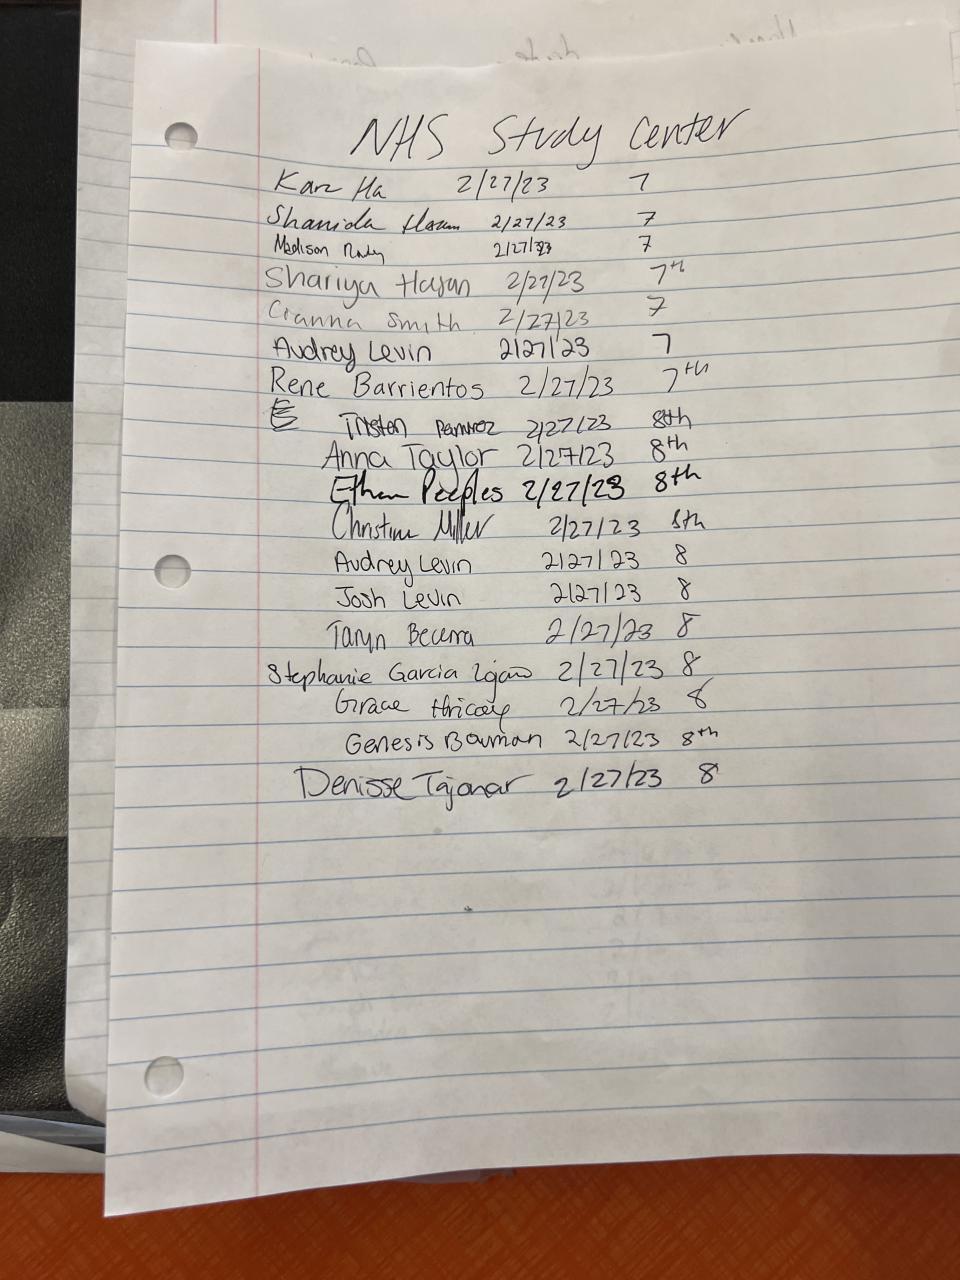 NHS Study Center
Kara Ha 2/27/23 7
Shanida 2/27/23 7
Madison 2/27/23 7
Shariya Hasan 2/27/23 7th
Cianna Smith 2/27/23 7
Audrey Levin 2/27/23 7
Rene Barrientos 2/27/23 7th
Triston Ramirez 2/27/23 8th
Anna Taylor 2/27/23 8th
Ethan Peeples 2/27/23 8th
Christine Miller 2/27/23 8th
Audrey Levin 2/27/23 8
Josh Levin 2/27/23 8
Taryn Becerra 2/27/23 8
Stephanie Garcia 2/27/23 8
Grace 2/27/23 8
Genesis Bowman 2/27/23 8th
Denisse Tajonar 2/27/23 8